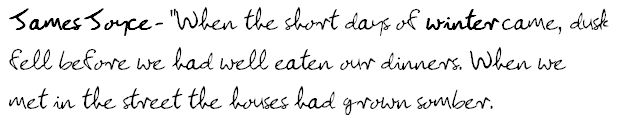 James Joyce - "When the short days of winter came, dusk
fell before we had well eaten our dinners. When we
met in the street the houses had grown somber.